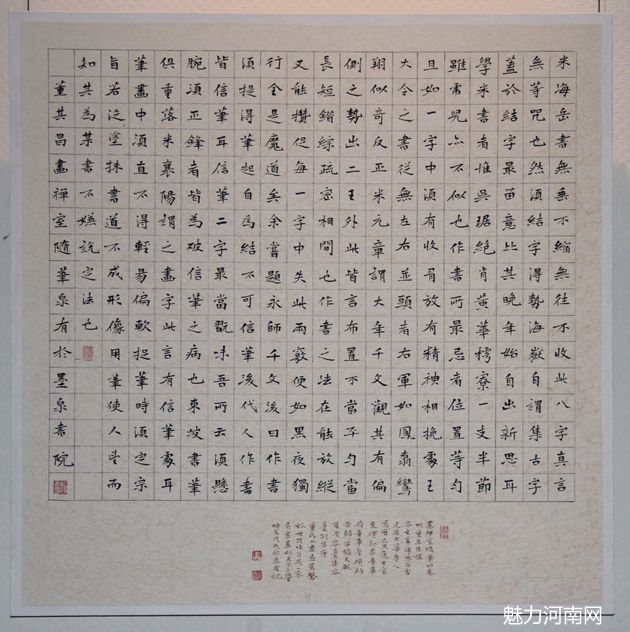 米海岳書無垂不縮無往不收此八字真言
無等咒也然須結字得勢海嶽自謂集古字
蓋於結字最留意比其晚年始自出新思耳
學米書者惟吳琚絕肖黃華樗寮一支半節
雖虎兒亦不似也作書所最忌者位置等勻
且如一字中須有收有放有精神相挽處王
大令之書從無左右並頭者右軍如鳳翥鸞
翔似奇反正米元章謂大年千文觀其有偏
側之勢出二王外此皆言布置不當平勻當
長短錯綜疏密相間也作書之法在能放縱
又能攢促每一字中失此兩竅便如黑夜獨
行全是魔道矣余嘗題永師千文後曰作書
須提得筆起自為結不可信筆後代人作書
皆信筆耳信筆二字最當翫味吾所云須懸
腕須正鋒者皆為破信筆之病也東坡書筆
俱重落米襄陽謂之畫字此言有信筆處耳
筆畫中須直不得輕易偏軟捉筆時須定宗
旨若泛塗抹書道不成形像用筆使人望而
知其為某書不嫌說定法也
董其昌畫禪室隨筆泉有於墨泉書院
魅力河南网